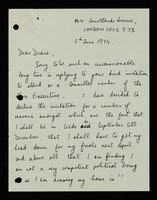 Courtlands Avenue,
LONDON SE12 8
3rd June 1974
Dear
Sorry to be such an unconscionable
long time in replying to your kind invitation
to stand as a committee member of the
Executive. I have decided to
decline the invitation for a number of
reasons amongst which are the fact that
I shall be in in September till
December that I shall have to get my
head down for my finals next April
and above all that I am finding I
am not a very competent political being
I am dressing my house in!!